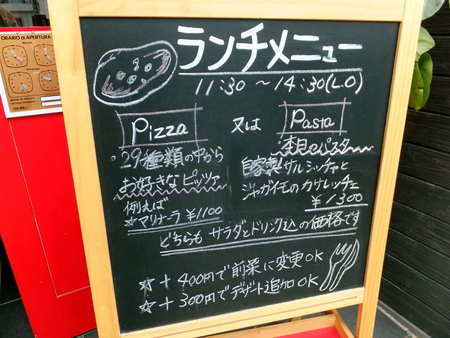 ORARIO di APERTURA
ランチメニュー
11:30 〜 14:30(L.O)
Pizza 又は Pasta
・29種類の中から
お好きなピッツァ
例えば
☆マリナーラ ¥1100
本日のパスタ
自家製サルシッチャと
ジャガイモのカサレッチェ
¥1300
どちらも サラダとドリンク込の価格です
☆ + 400円で前菜に変更OK
☆ + 300円でデザート追加OK